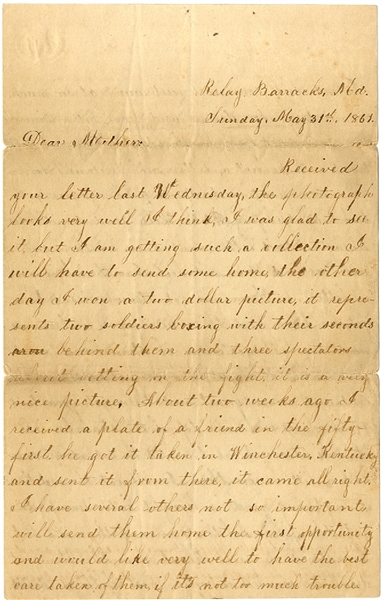 Relay Barracks, Md.
Sunday, May 31st, 1863.
Dear Mother:
Received
your letter last Wednesday, the photograph
looks very well I think, I was glad to see
it but I am getting such a collection I
will have to send some home, the other
day I won a two dollar picture, it repre-
sents two soldiers boxing with their seconds
behind them and three spectators
about betting on the fight, it is a very
nice picture. About two weeks ago I
received a plate of a friend in the fifty-
first, he got it taken in Winchester, Kentucky
and sent it from there, it came all right.
I have several others not so important
will send them home the first opportunity
and would like very well to have the best
care taken of them, if it's not too much trouble.